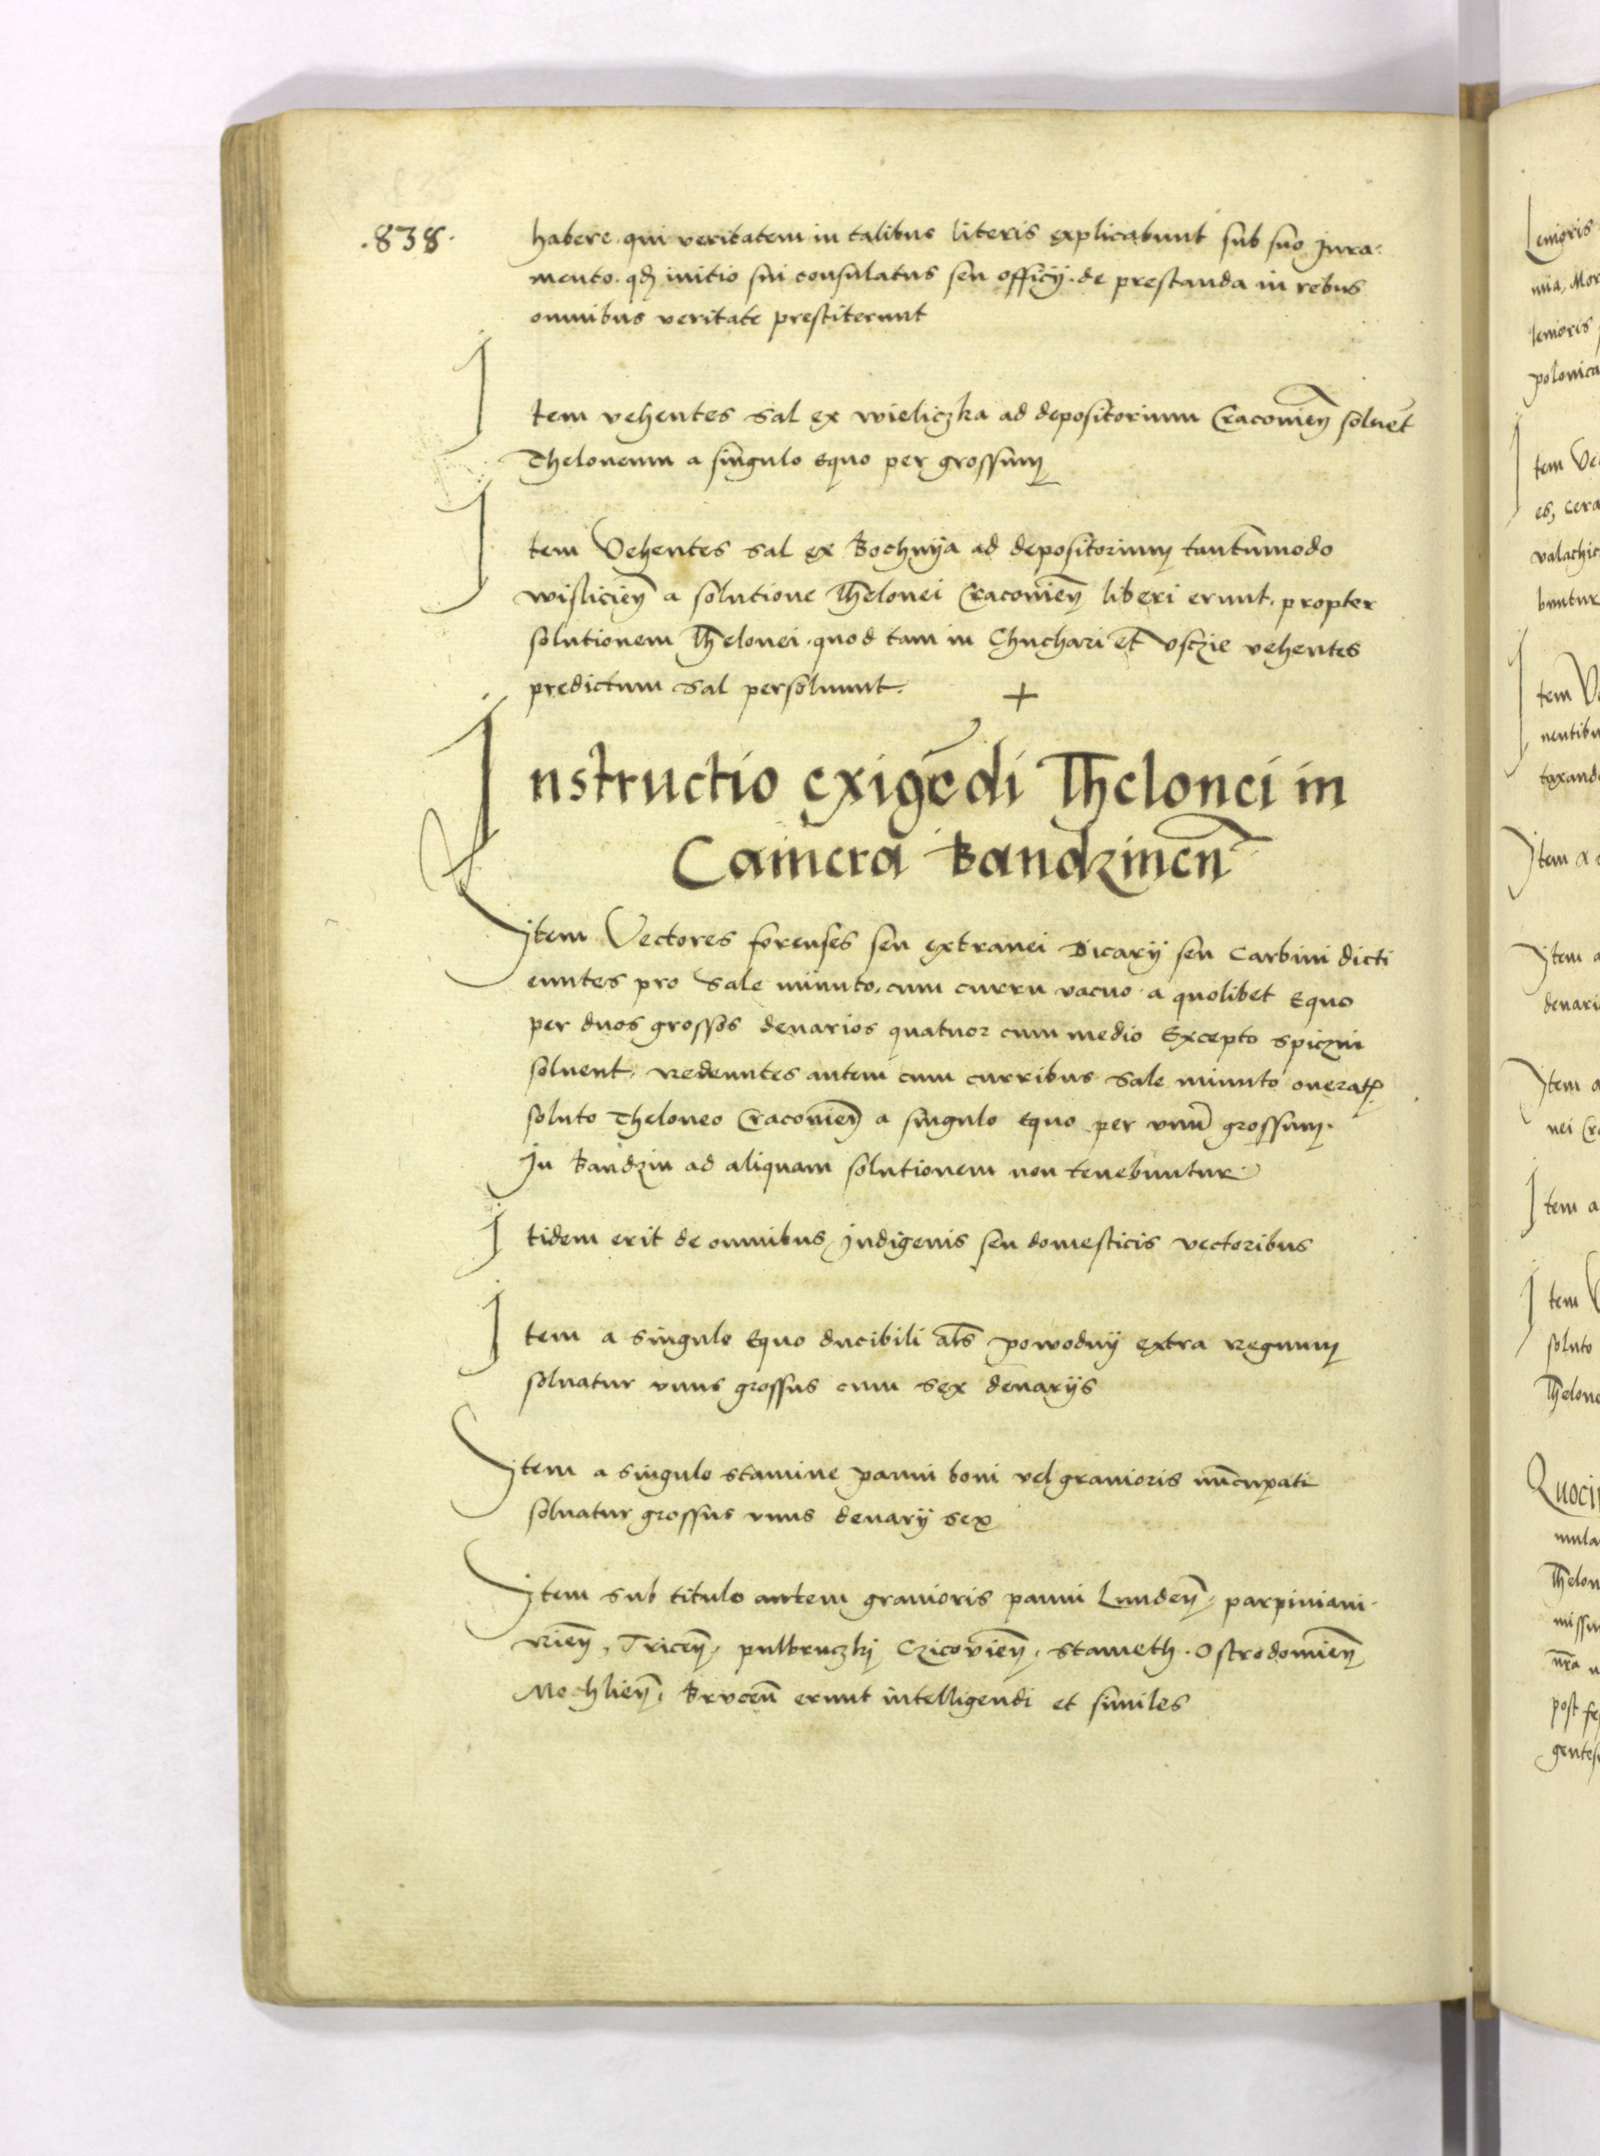 .838.
habere. qui veritatem in talibus literis explicabunt sub suo Jura:
mento. qđ initio sui consulatus seu officij. de prestanda in rebus
omnibus veritate prestiterunt
Item vehentes Sal ex wieliczka ad depositorium Cracovieñ solvẽt
Theloneum a singulo Equo per grossum
Item Vehentes Sal ex Bochnija ad depositorium tantũmodo
wisliciẽn a solutione Thelonei Cracovieñ liberi erunt. propter
solutionem Thelonei. quod tam in Chuchari et Vsczie vehentes
predictum Sal persolvunt. +
Instructio exigẽdi Thelonei in
Camera Bandzineñ
Item Vectores forenses seu extranei Bicarij seu Carbini dicti
euntes pro Sale minuto, cum curru vacuo a quolibet Equo
per duos grossos denarios quatuor cum medio Excepto Spiczni
solvent. Redeuntes autem cum curribus Sale minuto onerat
soluto Theloneo Cracovieñ a singulo Equo per vnũ grossum.
In Bandzin ad aliquam solutionem non tenebuntur
Itidem erit de omnibus Indigenis seu domesticis vectoribus
Item a singulo Equo ducibili als powodny extra Regnum
solvatur vnus grossus cum sex denarijs
Item a singulo stamine panni boni vel gravioris nũcupati
solvatur grossus vnus denarij sex
Item sub titulo autem gravioris panni Lundeñ, parpiniani.
Rieñ, Triceñ, pulbruczki Czicovieñ, Stameth. Ostrodomieñ
Mochlieñ, Bruceñ erunt intelligendi et similes
Lenioris
mia, Mor
lenioris
polonica
Item Ve
es, Cera
valachic
buntur
Item V
nentibu
taxand
Item a
Item a
denari
Item a
nei Cr
Item a
Item V
soluto
Thelone
Quoci
mula
Thelon
missu
nra
post fe
gentes